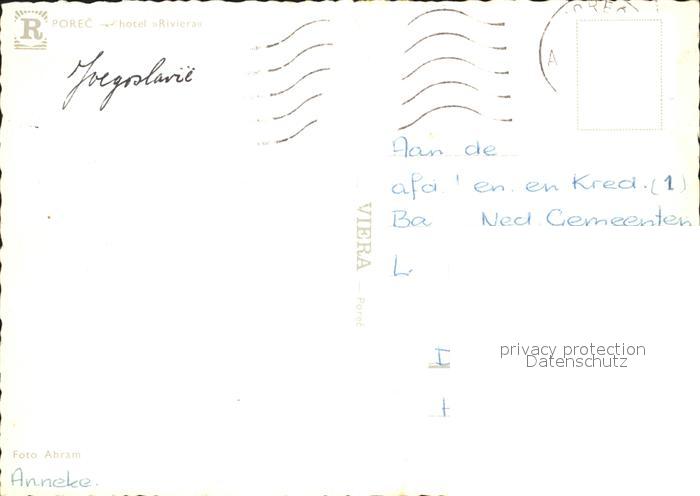 R
POREČ — hotel »Riviera«
Joegoslavië
POREČ
A
Aan de
afd. en. en Kred. (1)
Ba Ned. Gemeenten
L
VIERA — Poreč
privacy protection
Datenschutz
Foto Abram
Anneke.